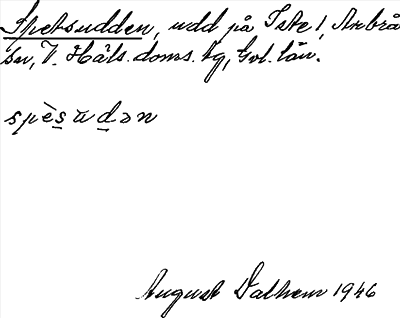 Spetsudden, udd på Iste 1, Arbrå
sn, V. Häls. doms. tg, Gvl. län.
spès̱ŭḏən
August Dalhem 1946